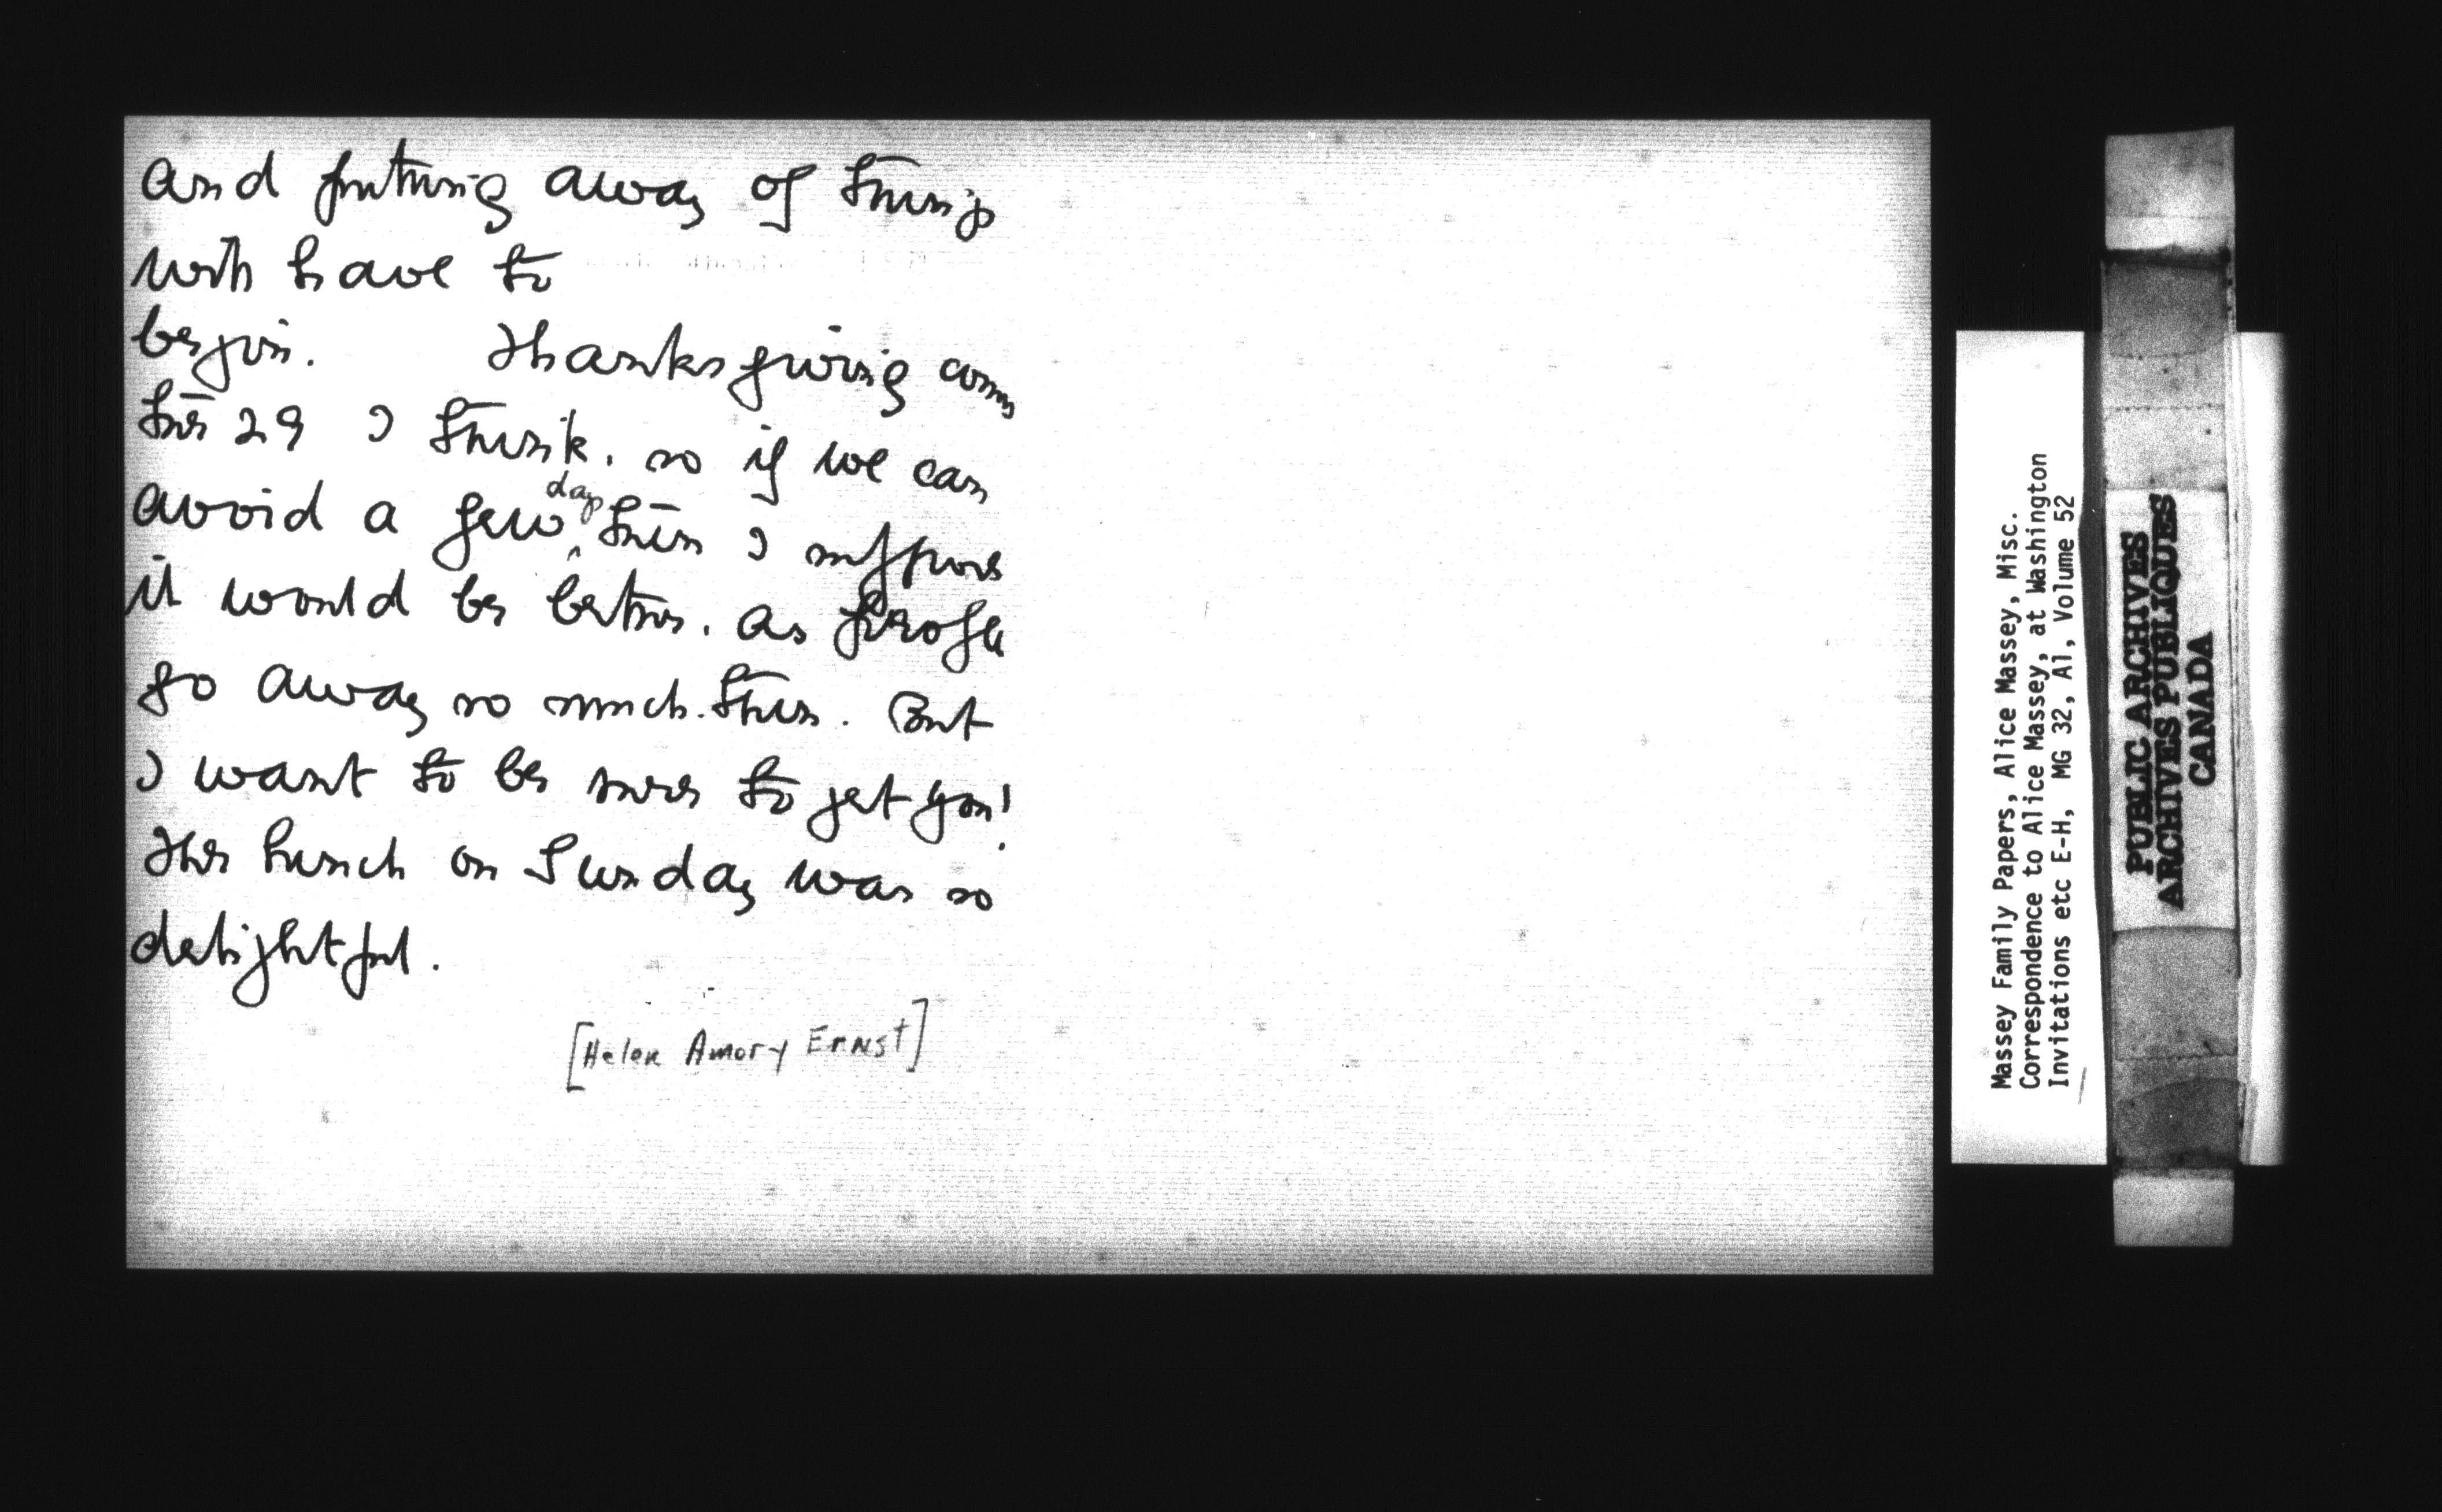 and putting away of things
will have to
begin. Thanksgiving comes
the 29 I think. so if we can
avoid a few days then I suppose
it would be better. as people
go away so much then. But
I want to be sure to get you!
The lunch on Sunday was so
delightful.
[Helen Amory Ernst]
Massey Family Papers, Alice Massey, Misc.
Correspondence to Alice Massey, at Washington
Invitations etc E-H, MG 32, A1, Volume 52
PUBLIC ARCHIVES
ARCHIVES PUBLIQUES
CANADA